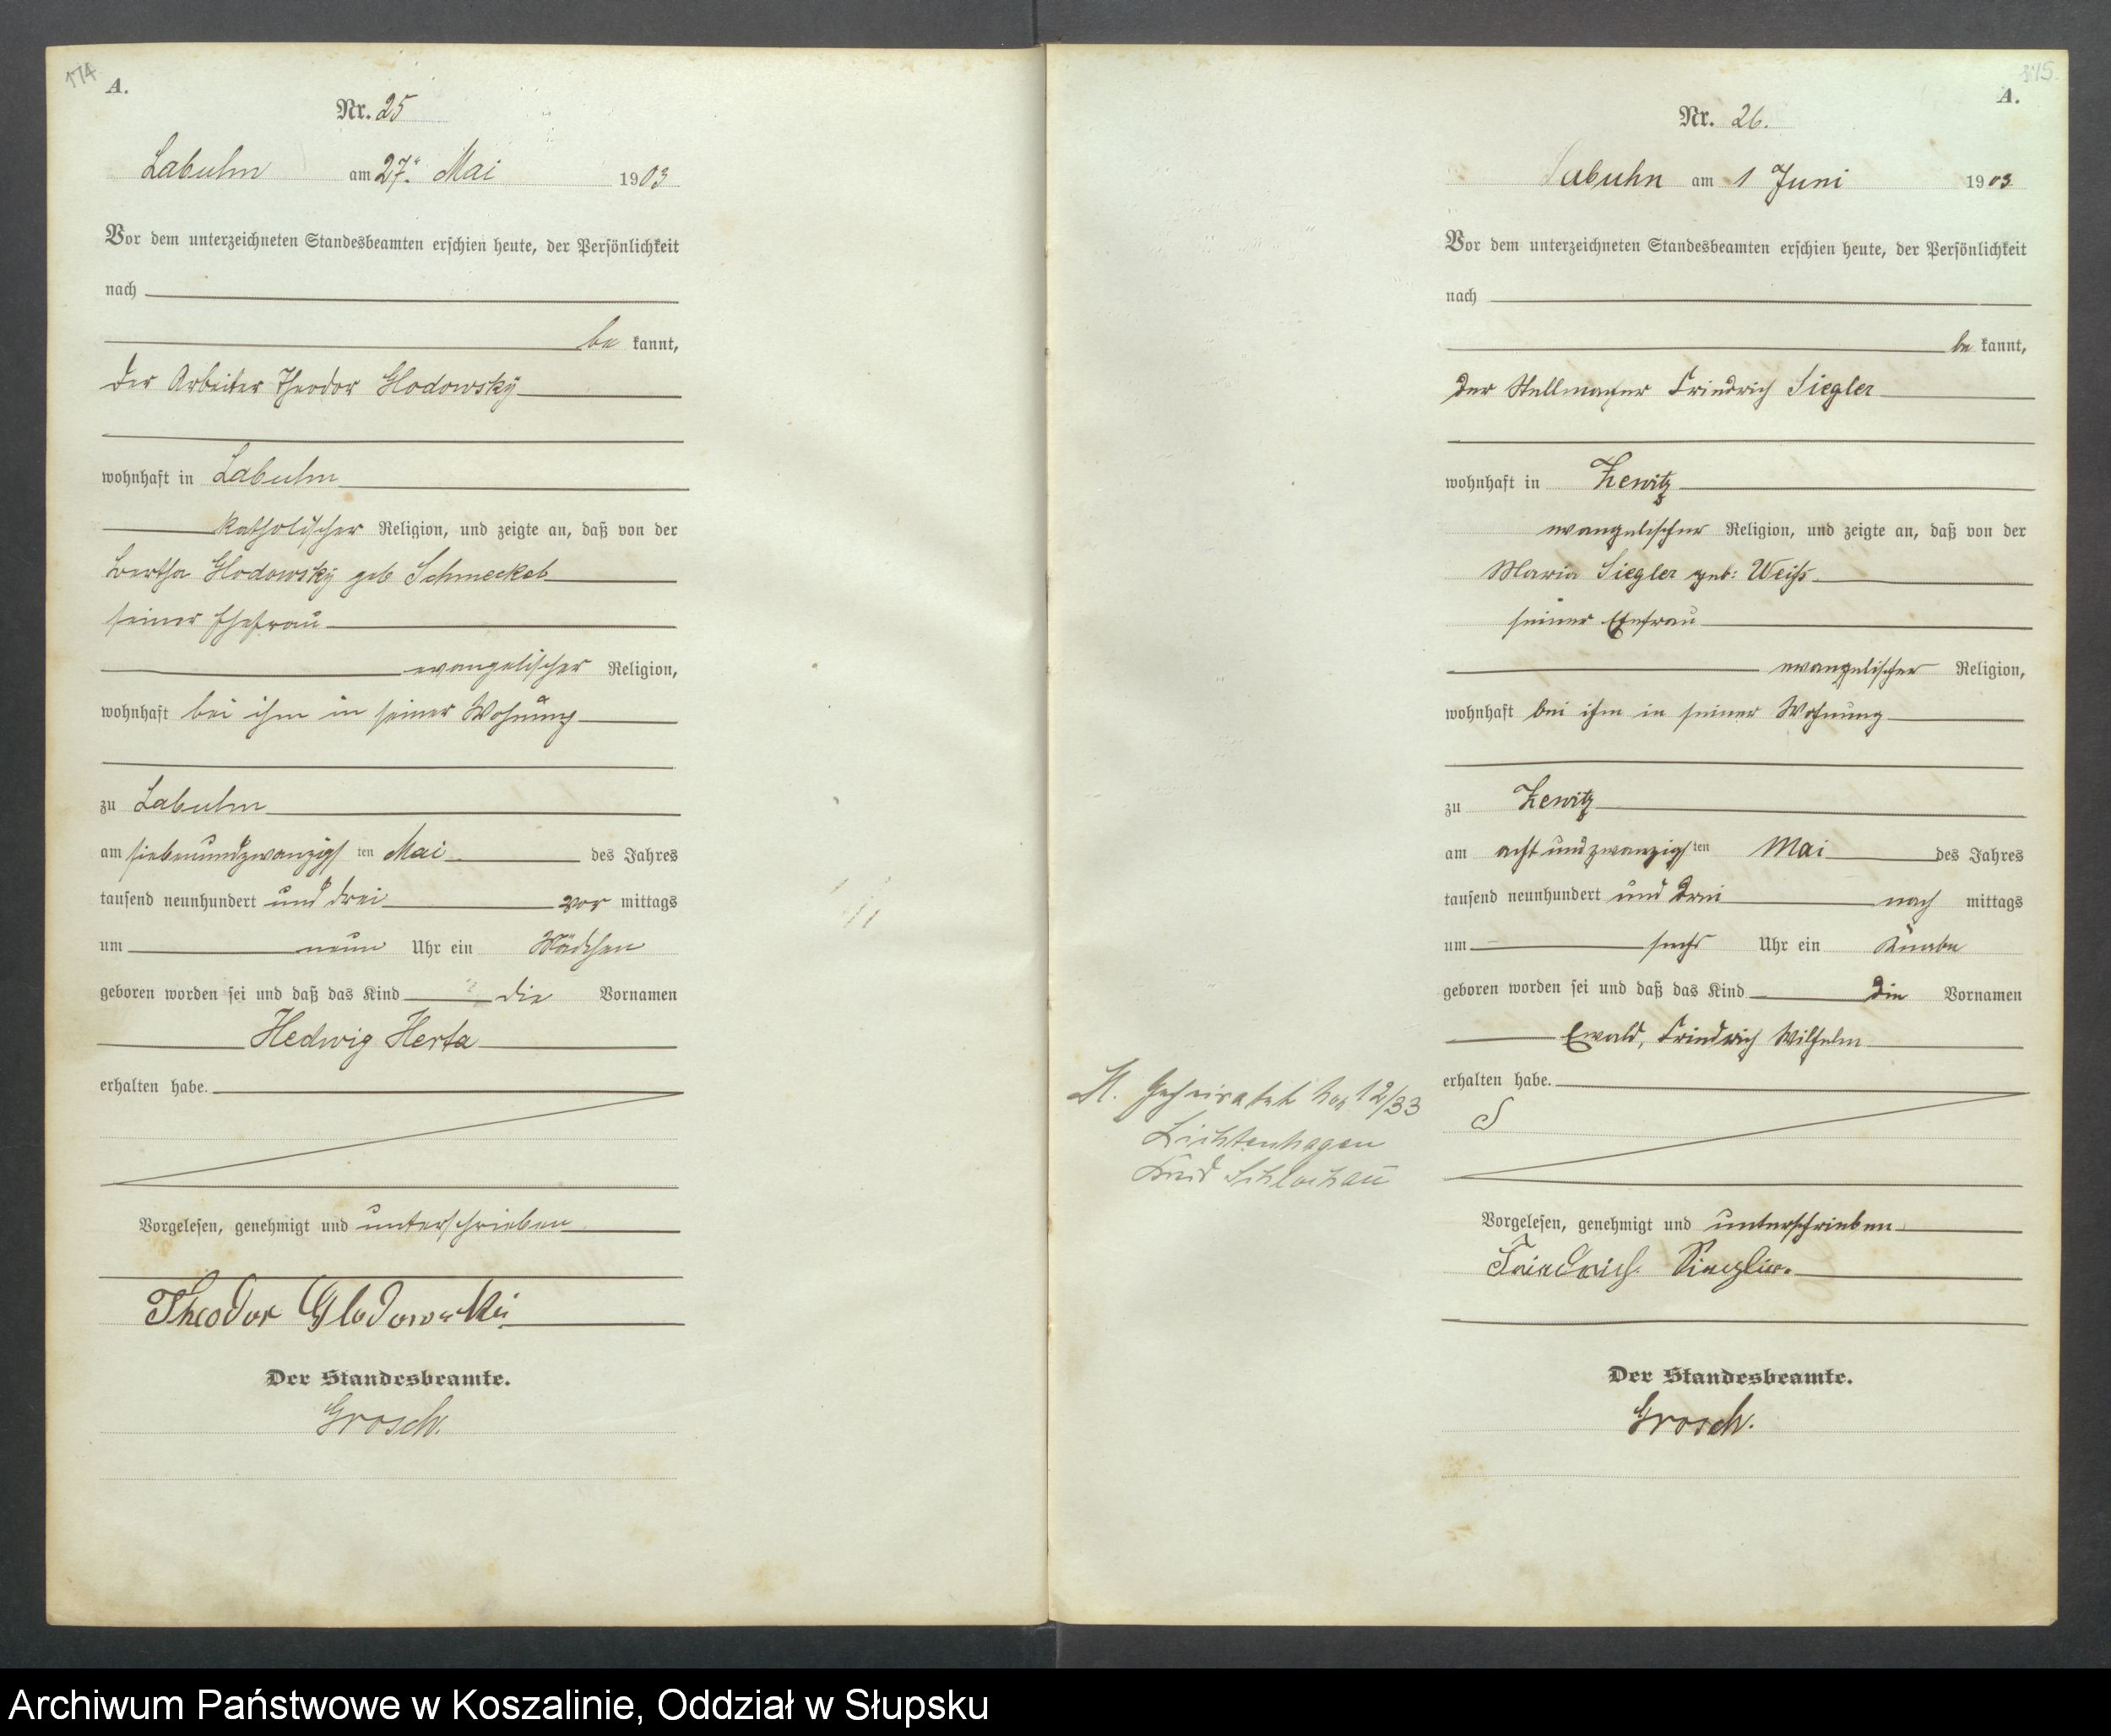 174
A.
Nr. 25
Labuhn am 27. Mai 1903
Vor dem unterzeichneten Standesbeamten erschien heute, der Persönlichkeit
nach
be kannt,
der Arbeiter Theodor Glodowsky
wohnhaft in Labuhn
katholischer Religion, und zeigte an, daß von der
Bertha Glodowsky geb Schmeckel
seiner Ehefrau
evangelischer Religion,
wohnhaft bei ihm in seiner Wohnung
zu Labuhn
am siebenundzwanzigsten Mai des Jahres
tausend neunhundert und drei vor mittags
um neun Uhr ein Mädchen
geboren worden sei und daß das Kind die Vornamen
Hedwig Herta
erhalten habe.
Vorgelesen, genehmigt und unterschrieben
Theodor Glodowski
Der Standesbeamte.
Grosch.
175.
A.
Nr. 26.
Labuhn am 1 Juni 1903
Vor dem unterzeichneten Standesbeamten erschien heute, der Persönlichkeit
nach
be kannt,
der Stellmacher Friedrich Siegler
wohnhaft in Zewitz
evangelischer Religion, und zeigte an, daß von der
Maria Siegler geb: Weiß
seiner Ehefrau
evangelischer Religion,
wohnhaft bei ihm in seiner Wohnung
zu Zewitz
am acht und zwanzigsten Mai des Jahres
tausend neunhundert und drei nach mittags
um sechs Uhr ein Knabe
geboren worden sei und daß das Kind die Vornamen
Ewald, Friedrich Wilhelm
erhalten habe.
St. Geheiratet No 12/33
Lichtenhagen
Kreis Schlochau
Vorgelesen, genehmigt und unterschrieben
Friedrich Siegler.
Der Standesbeamte.
Grosch.
Archiwum Państwowe w Koszalinie, Oddział w Słupsku